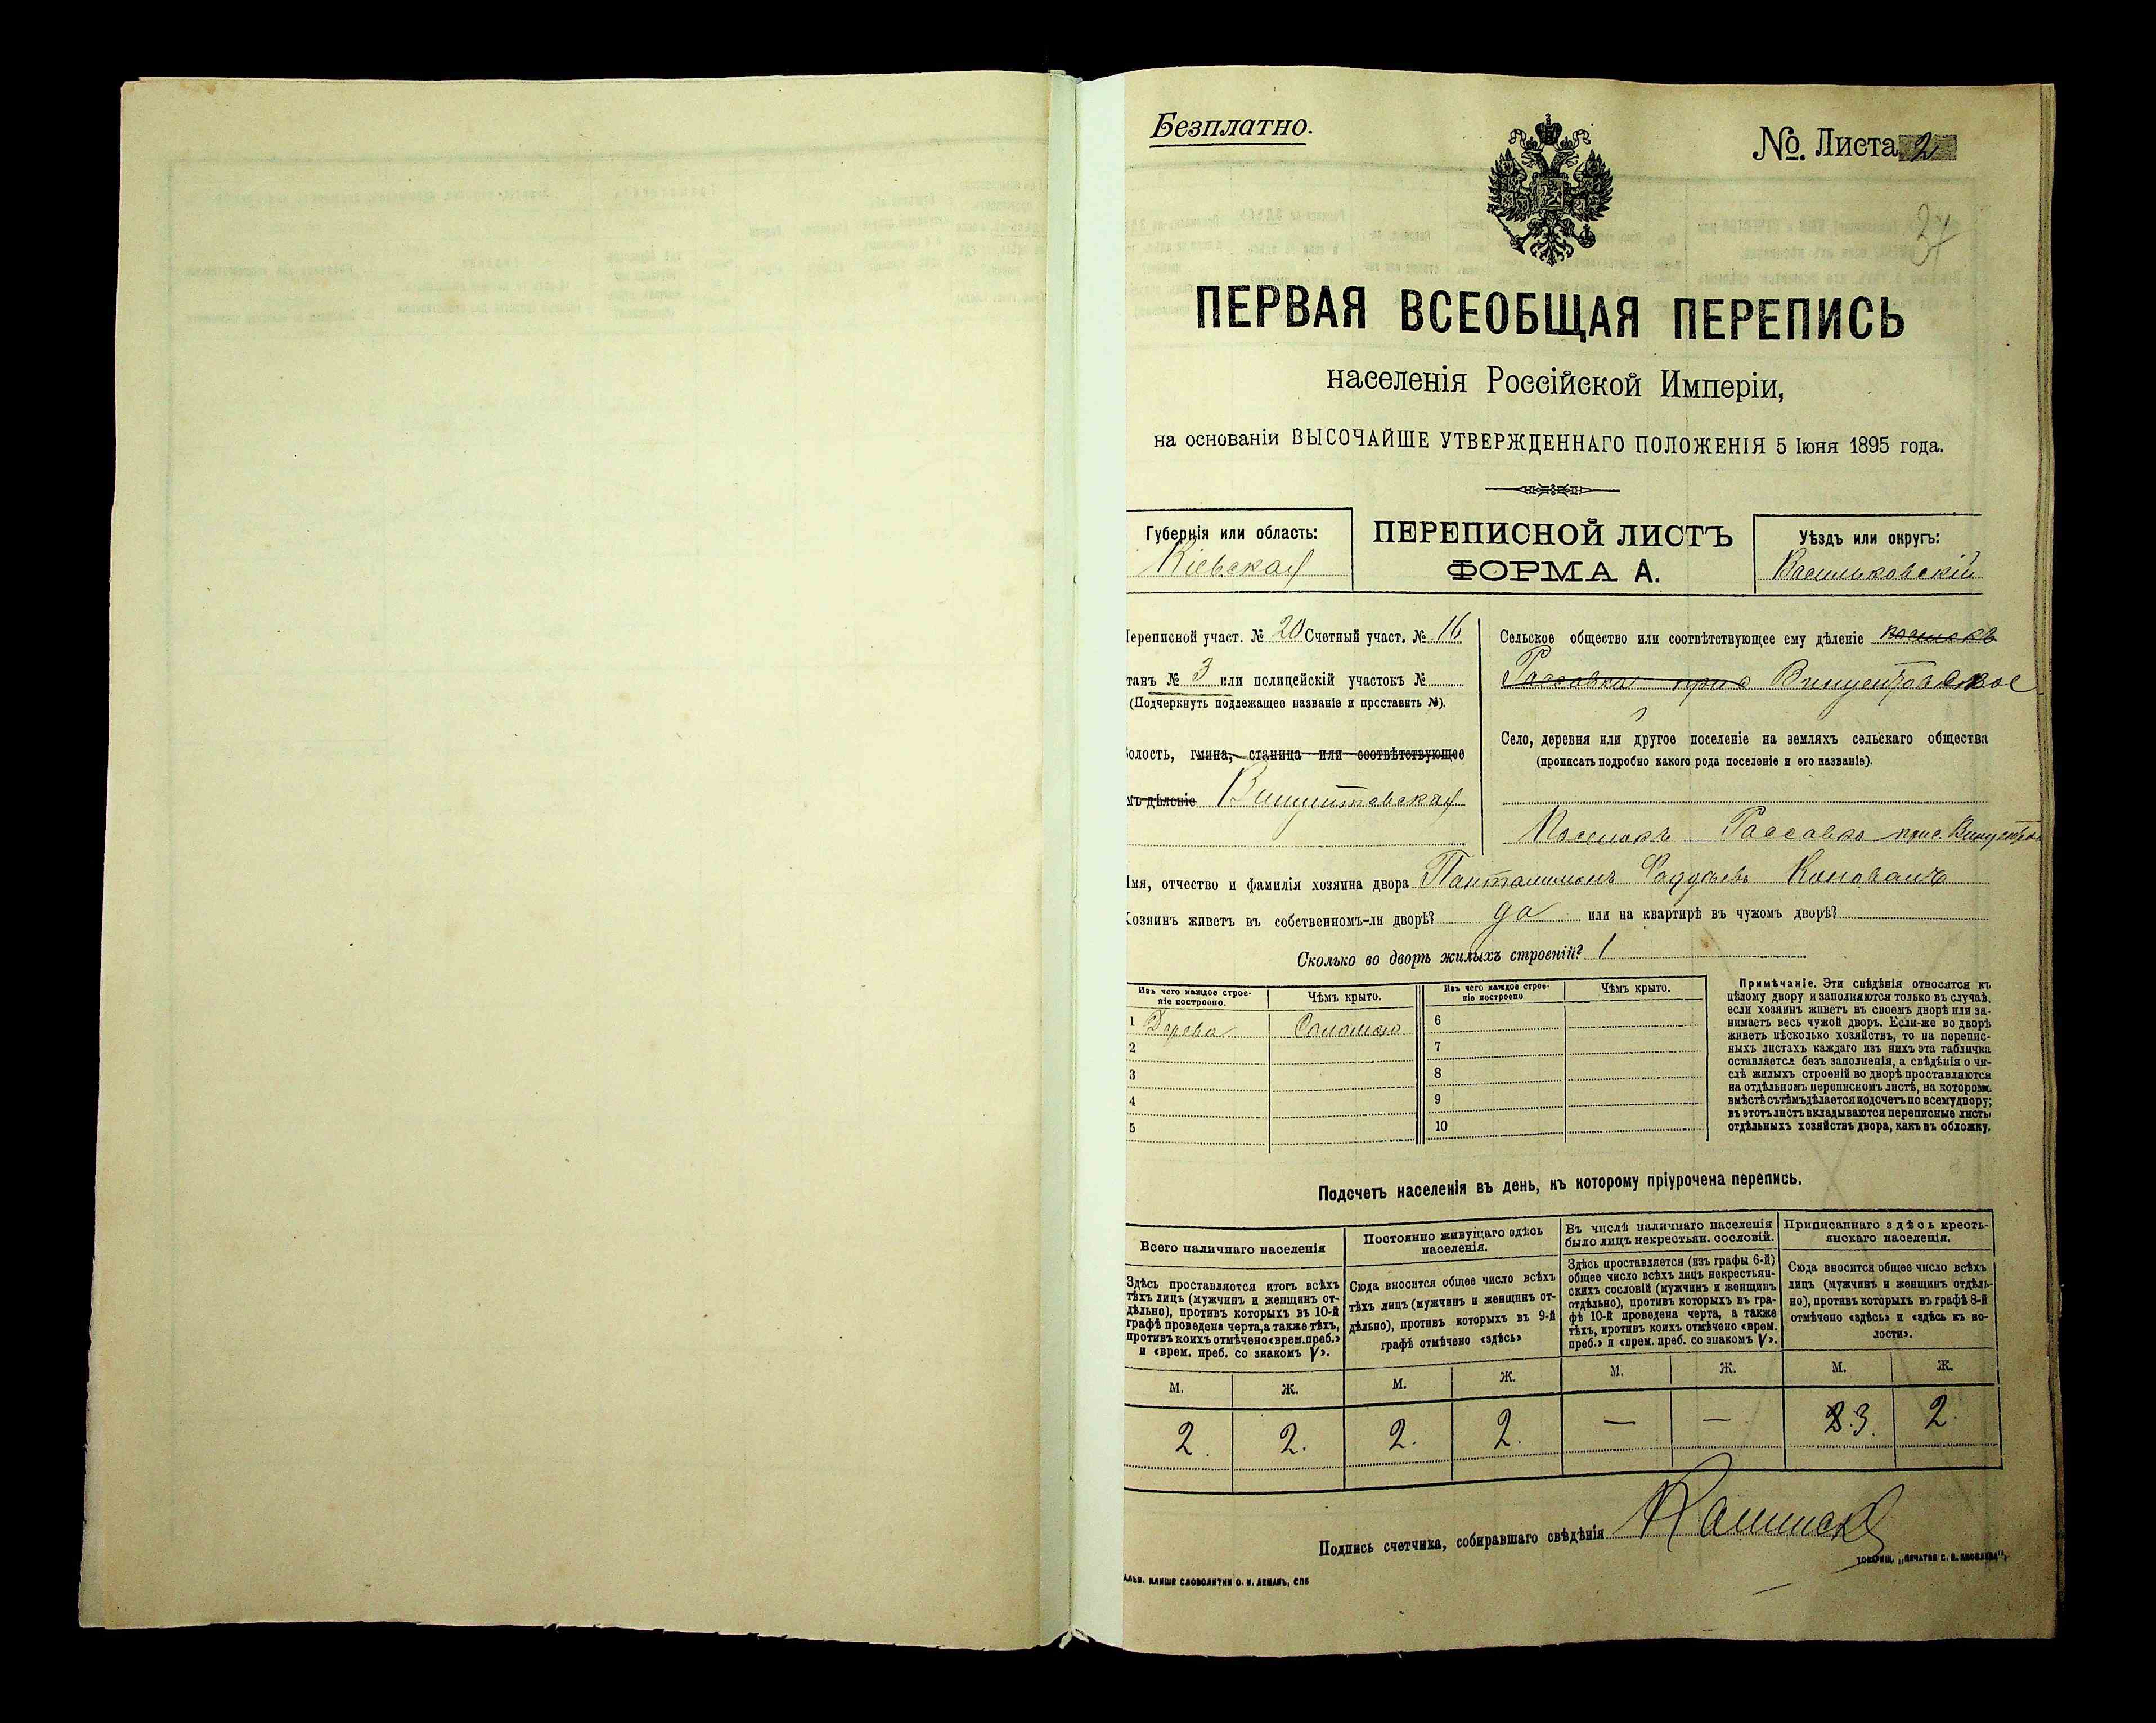 Безплатно.
№. Листа 2
37
ПЕРВАЯ ВСЕОБЩАЯ ПЕРЕПИСЬ
населенія Россійской Имперіи,
на основаніи ВЫСОЧАЙШЕ УТВЕРЖДЕННАГО ПОЛОЖЕНІЯ 5 Іюня 1895 года.
Губернія или область:
Кіевская
ПЕРЕПИСНОЙ ЛИСТЪ
ФОРМА А.
Уѣздъ или округъ:
Васильковскій
Переписной участ. № 20 Счетный участ. № 16
танъ № 3 или полицейскій участокъ №
(Подчеркнуть подлежащее названіе и проставить №).
Волость, гмина, станица или соотвѣтствующее
мъ дѣленіе
Сельское общество или соотвѣтствующее ему дѣленіе поселокъ
Село, деревня или другое поселеніе на земляхъ сельскаго общества
(прописать подробно какого рода поселеніе и его названіе).
Поселокъ
Имя, отчество и фамилія хозяина двора
Хозяинъ живетъ въ собственномъ-ли дворѣ? да или на квартирѣ въ чужомъ дворѣ?
Сколько во дворѣ жилыхъ строеній? 1
Изъ чего каждое строе-
ніе построено.
Чѣмъ крыто.
Изъ чего каждое строе-
ніе построено
Чѣмъ крыто.
1 Дерева Соломою 6
2 7
3 8
4 9
5 10
Примѣчаніе. Эти свѣдѣнія относятся къ
цѣлому двору и заполняются только въ случаѣ,
если хозяинъ живетъ въ своемъ дворѣ или за-
нимаетъ весь чужой дворъ. Если-же во дворѣ
живетъ нѣсколько хозяйствъ, то на перепис-
ныхъ листахъ каждаго изъ нихъ эта табличка
оставляется безъ заполненія, а свѣдѣнія о чи-
слѣ жилыхъ строеній во дворѣ проставляются
на отдѣльномъ переписномъ листѣ, на которомъ
вмѣстѣ съ тѣмъ дѣлается подсчетъ по всему двору;
въ этотъ листъ вкладываются переписные листы
отдѣльныхъ хозяйствъ двора, какъ въ обложку.
Подсчетъ населенія въ день, къ которому пріурочена перепись.
Всего наличнаго населенія
Здѣсь проставляется итогъ всѣхъ
тѣхъ лицъ (мужчинъ и женщинъ от-
дѣльно), противъ которыхъ въ 10-й
графѣ проведена черта, а также тѣхъ,
противъ коихъ отмѣчено «врем. преб.»
и «врем. преб. со знакомъ V».
Постоянно живущаго здѣсь
населенія.
Сюда вносится общее число всѣхъ
тѣхъ лицъ (мужчинъ и женщинъ от-
дѣльно), противъ которыхъ въ 9-й
графѣ отмѣчено «здѣсь»
Въ числѣ наличнаго населенія
было лицъ некрестьян. сословій.
Здѣсь проставляется (изъ графы 6-й)
общее число всѣхъ лицъ некрестьян-
скихъ сословій (мужчинъ и женщинъ
отдѣльно), противъ которыхъ въ гра-
фѣ 10-й проведена черта, а также
тѣхъ, противъ коихъ отмѣчено «врем.
преб.» и «врем. преб. со знакомъ V».
Приписаннаго здѣсь кресть-
янскаго населенія.
Сюда вносится общее число всѣхъ
лицъ (мужчинъ и женщинъ отдѣль-
но), противъ которыхъ въ графѣ 8-й
отмѣчено «здѣсь» и «здѣсь къ во-
лости».
М. Ж. М. Ж. М. Ж. М. Ж.
2. 2. 2. 2. — — 2.3. 2.
Подпись счетчика, собиравшаго свѣдѣнія